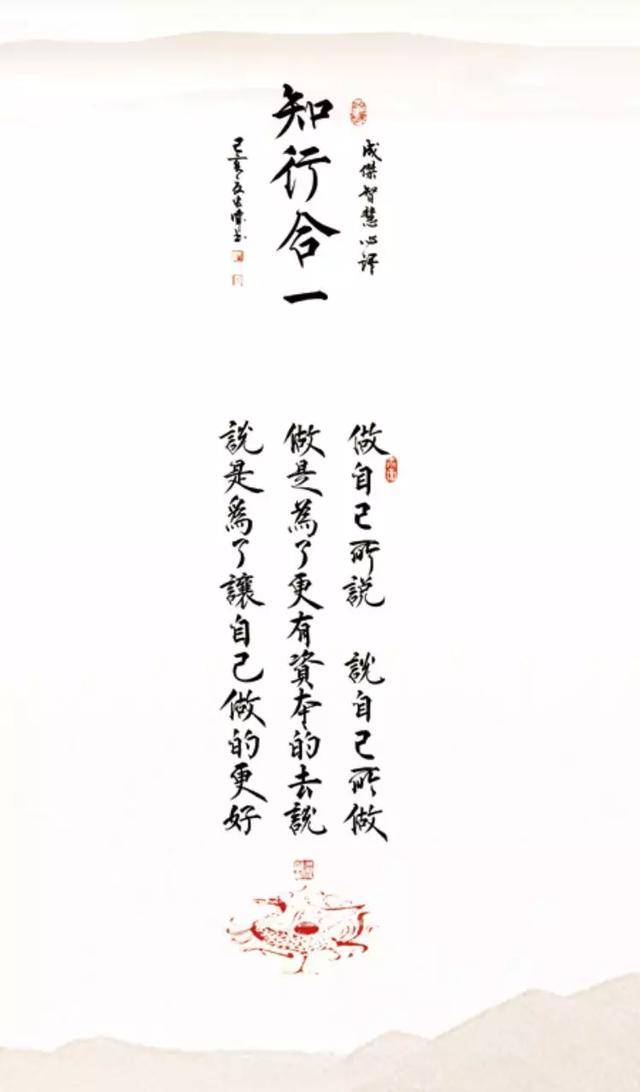 成傑智慧心譯
知行合一
己亥
做自己所說 說自己所做
做是為了更有資本的去說
說是為了讓自己做的更好